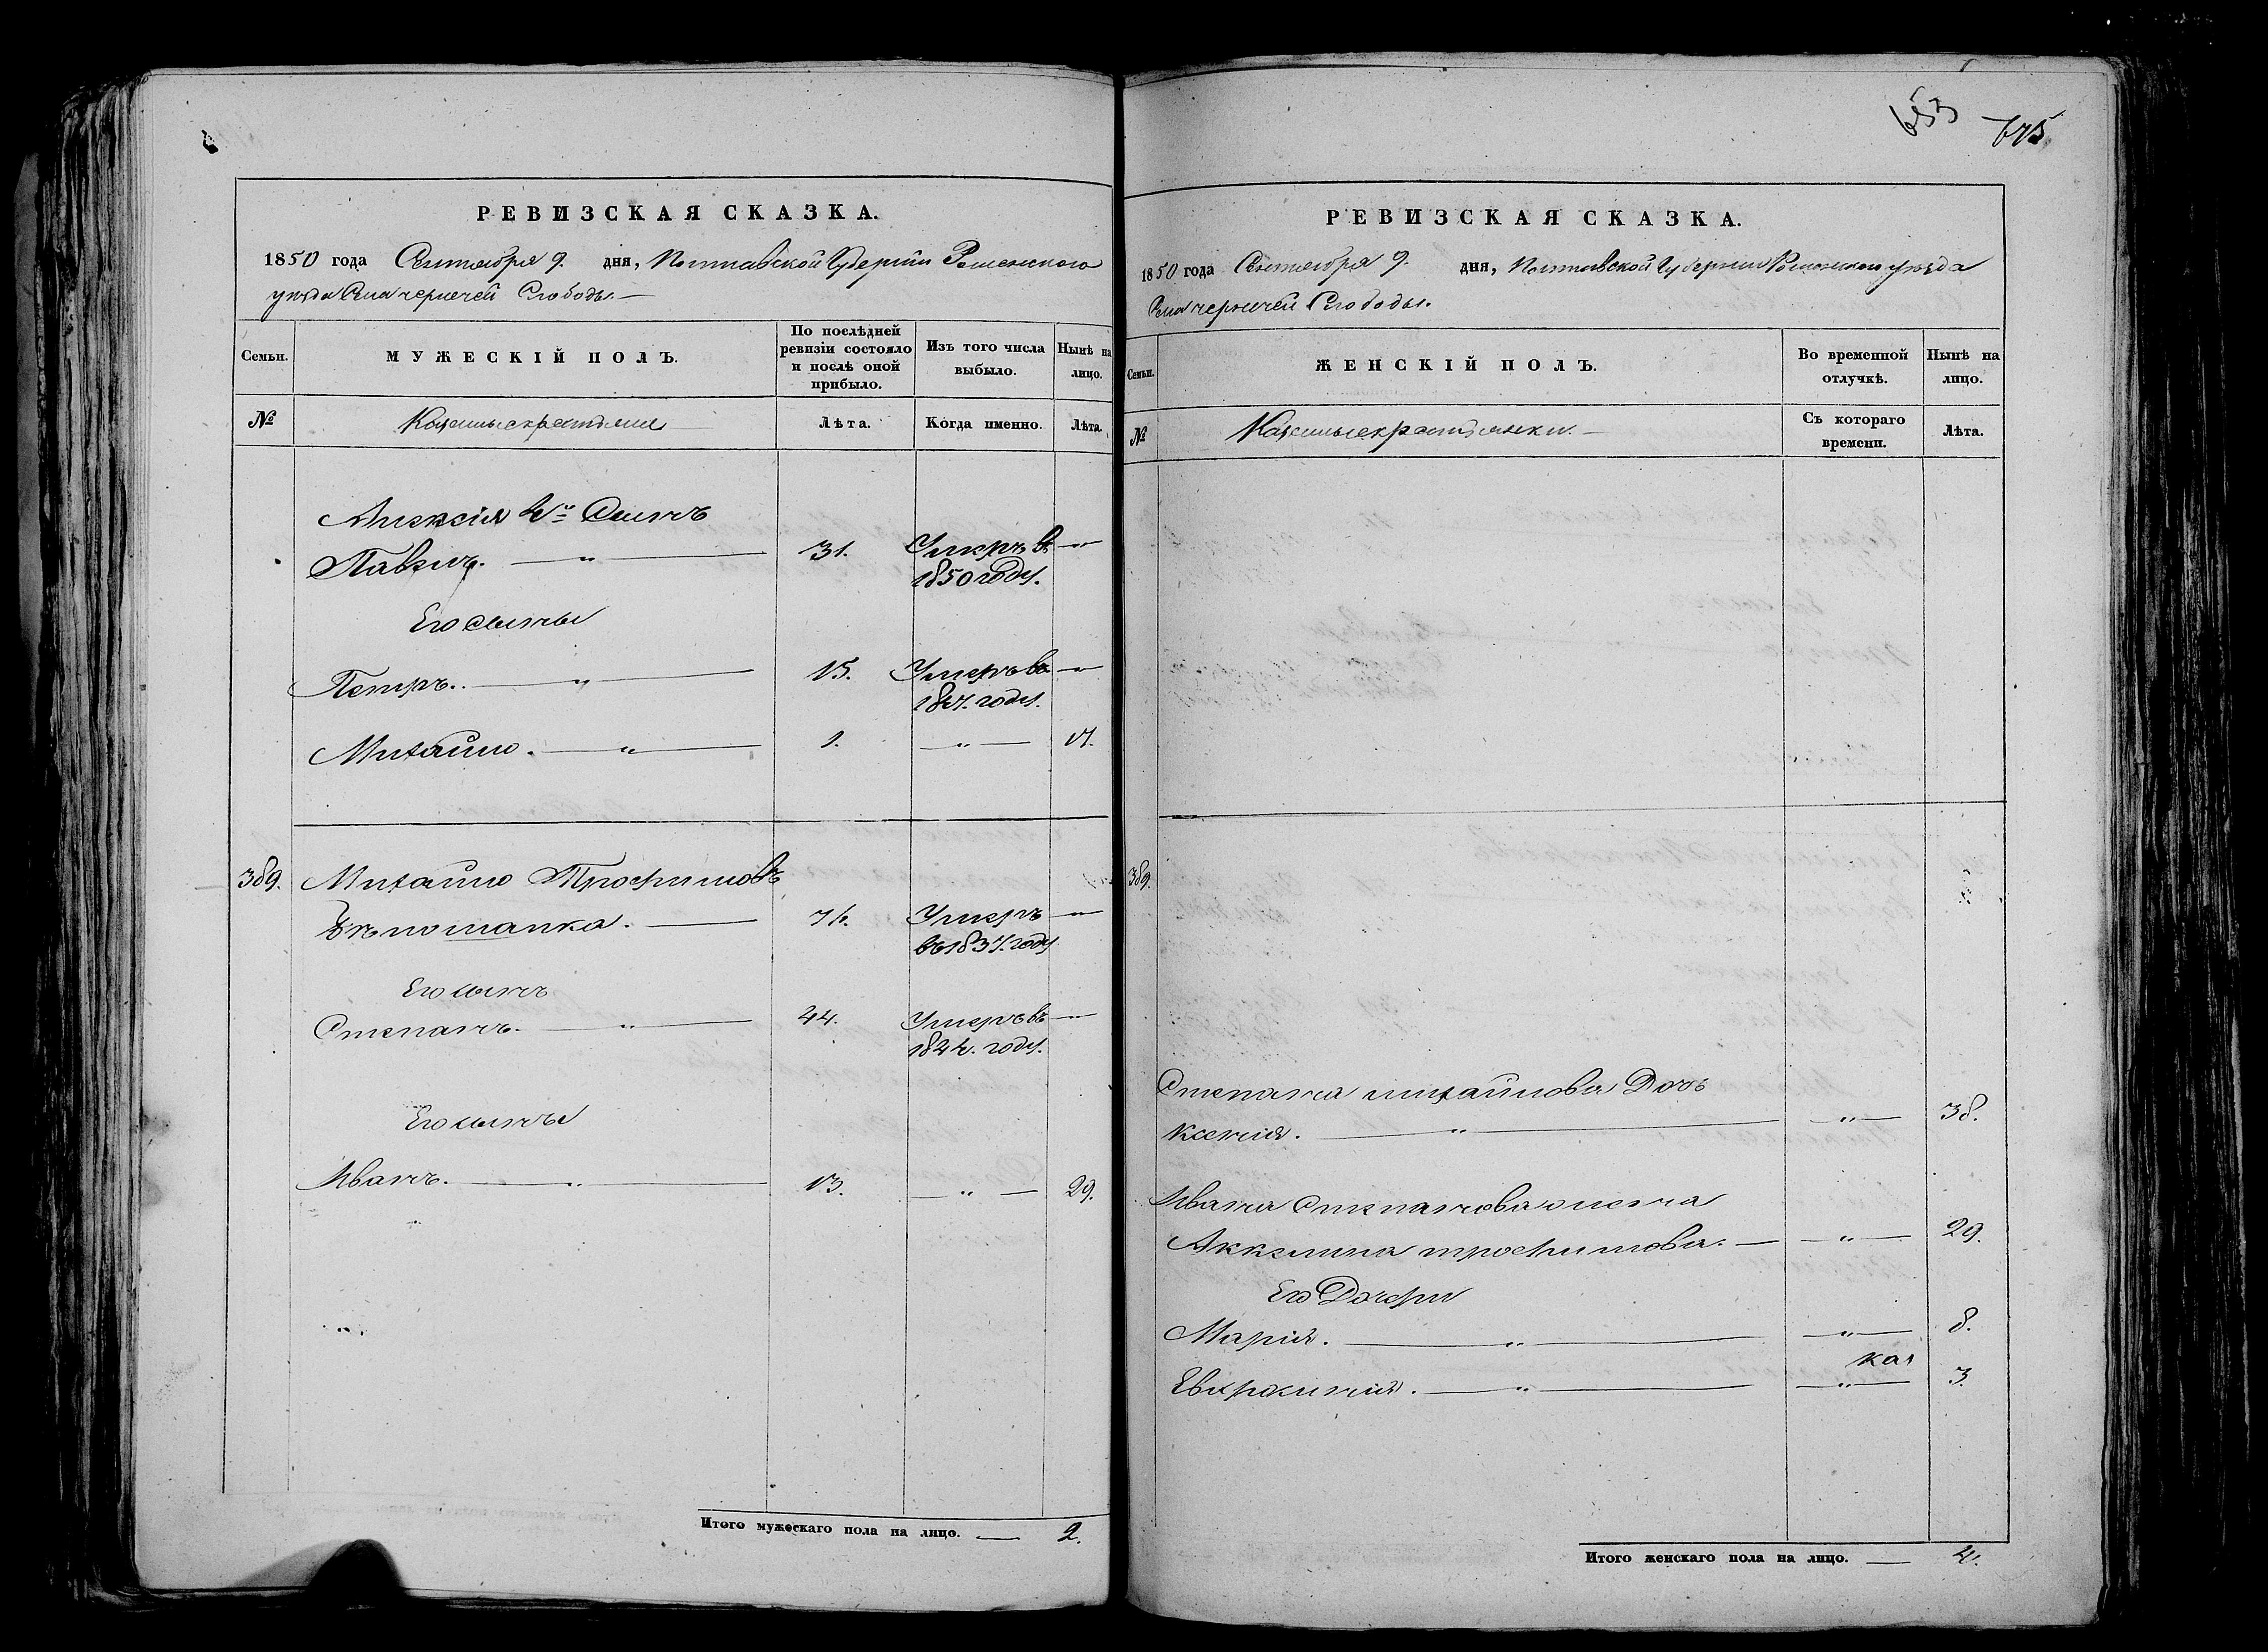 РЕВИЗСКАЯ СКАЗКА.
1850 года Сентября 9. дня, Полтавской Губернии Роменскаго
уезда Села черначей Слободы.—
Семьи.
МУЖЕСКІЙ ПОЛЪ.
По послѣдней ревизіи состояло и послѣ оной прибыло.
Изъ того числа выбыло.
Нынѣ на лицо.
№
Казенные крестьяне
Лѣта.
Когда именно.
Лѣта.
Алексія 4й Сынъ
Павелъ. — " — 31. Умеръ въ —"—
1850 году.
Его сыны
Петръ. — " — 15. Умеръ въ —"—
1847. году.
Михайло. — " — 1. —"— 17.
389. Михайло Трофимовъ
Бѣлошапка. — 74. Умеръ —"—
въ 1837. году
Его сынъ
Степанъ. — " — 44. Умеръ въ —"—
1844. году.
Его сыны
Иванъ. — " — 13. —"— 29.
Итого мужескаго пола на лицо. — 2.
653
675
РЕВИЗСКАЯ СКАЗКА.
1850 года Сентября 9. дня, Полтавской Губернии Роменскаго уезда
Села черначей Слободы.
Семьи.
ЖЕНСКІЙ ПОЛЪ.
Во временной отлучкѣ.
Нынѣ на лицо.
№
Казенные крестьянки. —
Съ котораго времени.
Лѣта.
389.
Степана михайлова Дочь
Ксенія. — " — —"— 38.
Ивана Степанова жена
Аккилина трофимова. — —"— 29.
Его Дочери
Марія. — " — —"— 8.
кая
Евфросинія. — " — —"— 3.
Итого женскаго пола на лицо. — 4.